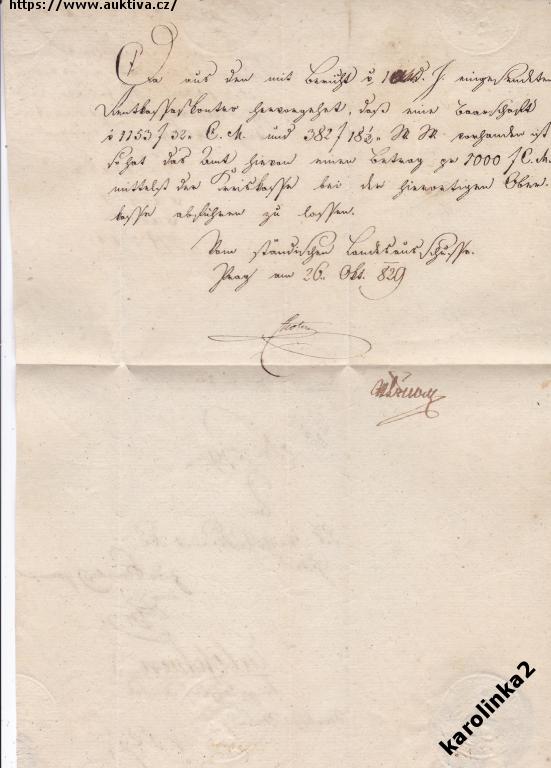 https://www.auktiva.cz/
Da aus dem mit Bericht v. d. J. eingesendeten
Rentkassaskontro hervorgehet, daß eine Baarschaft
v 1153 f 32 x C. M. und 382 f 18½ x W. W. vorhanden ist
so hat das Amt hievon einen Betrag pr 1000 f C. M.
mittelst der Kreiskasse bei der hierortigen Ober-
kasse abführen zu lassen.
Vom ständischen Landesausschusse.
Prag am 26. Okt. 829
karolinka2